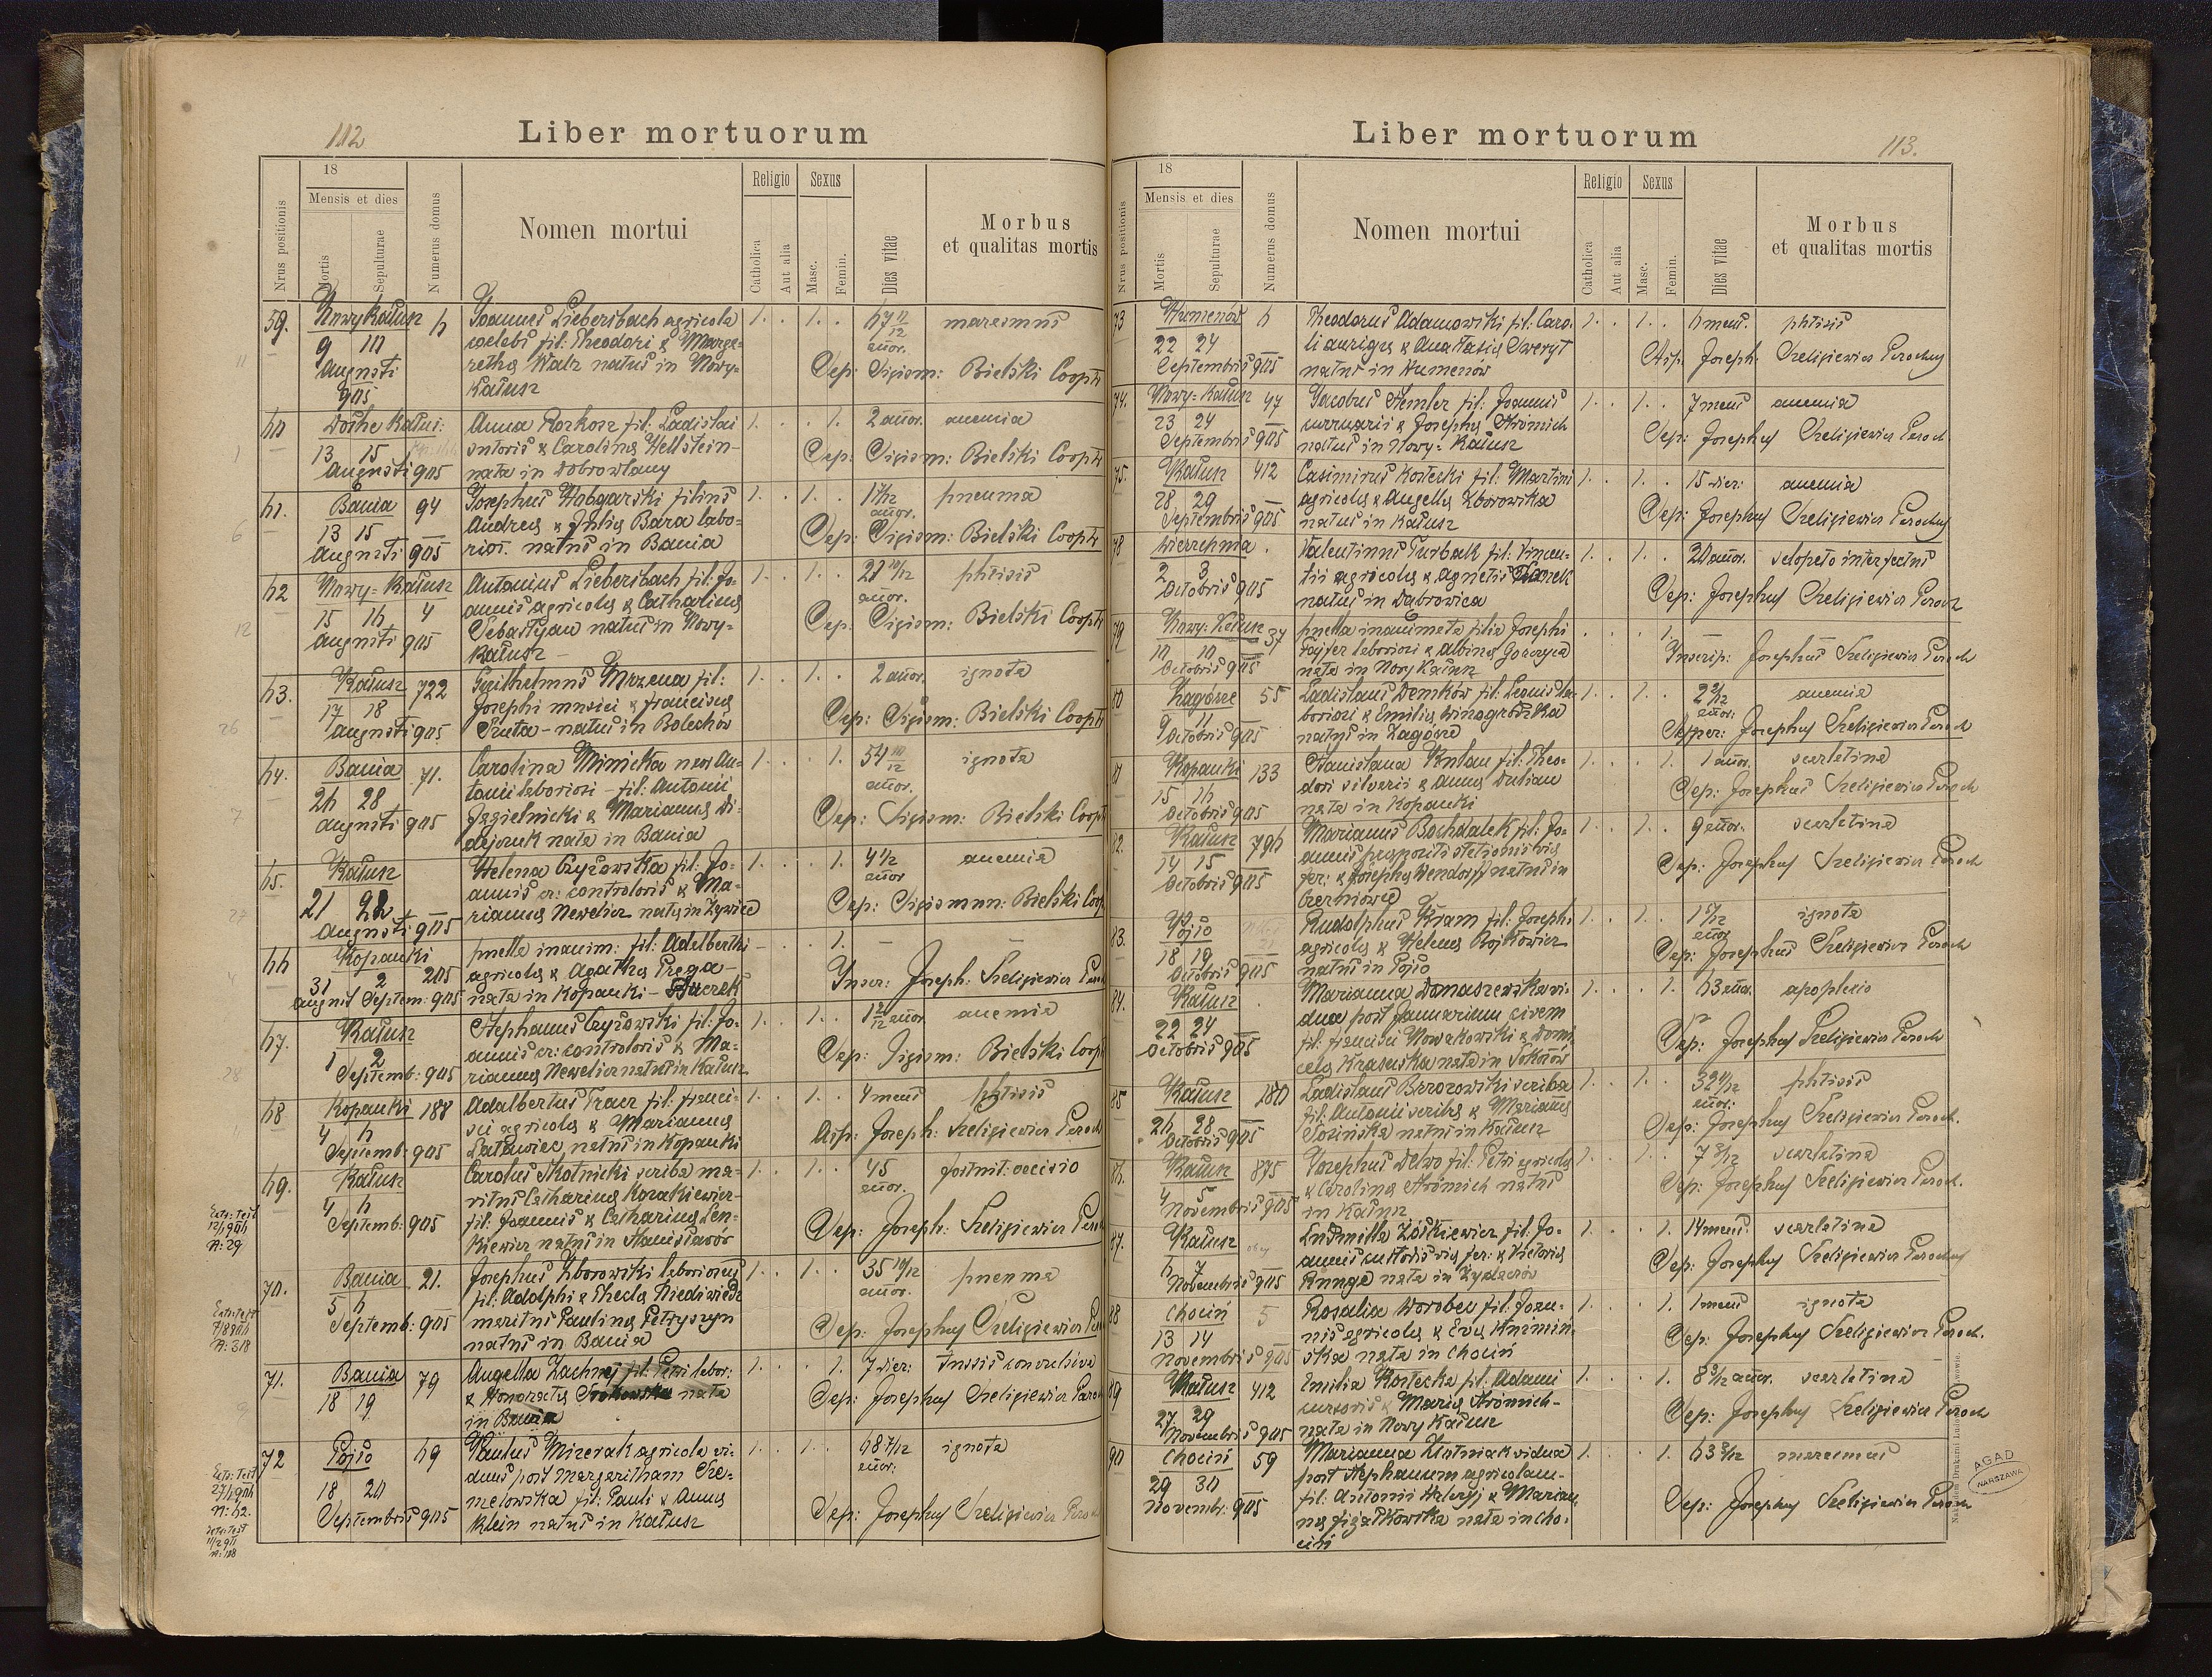 112
Liber mortuorum
Nrus positionis
18
Mensis et dies
Mortis
Sepulturae
Numerus domus
Nomen mortui
Religio
Catholica
Aut alia
Sexus
Masc.
Femin.
Dies vitae
Morbus
et qualitas mortis
59.
Nowy Kałusz
9 10
Augusti
905
Joannes Liebersbach agricola
coelebs fil: Theodori & Marga=
retha Walz natus in Nowy=
Kałusz
67 11/12
annor.
marasmus
Sep: Sigism: Bielski Coopt
60
13 15
Augusti 905
Anna Rozkosz fil: Ladislai
sutoris & Carolina Hellstein-
nata in Dobrowlany
1. 1. 2 annor. anemia
Sep: Sigism: Bielski Coopt
61.
Bania 94
13 15
Augusti 905
Josephus filius
Andrea & Julia Bara labo=
rios. natus in Bania
1. 1. pneuma
Sep: Sigism: Bielski Coopt
62
Nowy=Kałusz
15 16 4
Augusti 905
Antonius Liebersbach fil: Jo=
annis agricola & Catharina
Sebastyan natus in Nowy=
Kałusz
1. 1. 21 10/12
annor.
phtisis
Sep: Sigism: Bielski Coopt
63.
Kałusz 722
17 18
Augusti 905
Guilhelmus Mrzena fil:
Josephi musici & Francisca
Szuta - natus in Bolechów
1. 1. 2 annor. ignota
Sep: Sigism: Bielski Coopt
64.
Bania 71.
26 28
Augusti 905
Carolina Mimicka uxor An=
tonii laboriosi - fil: Antonii
Jagielnicki & Marianna Di=
dejczuk nata in Bania
1. 1. 54 10/12
annor.
ignota
Sep: Sigism: Bielski Coopt
65.
Kałusz
21 22
Augusti 905
Helena Czyżowska fil: Jo=
annis cr: controloris & Ma=
rianna Newelicz nata in Żywiec
1. 1. 4 1/2
annor
anemia
Sep: Sigismun: Bielski Coop
66
Kopanki
31 2 205
August Septem: 905
puella inanim: fil: Adalberthi
agricola & Agatha Prega
nata in Kopanki
1.
Inscr: Joseph: Szeligiewicz Paroch
67.
Kałusz
1 2
Septemb: 905
Stephanus Czyżowski fil: Jo=
annis cr: controloris & Ma=
rianna Newelicz natus in Kałusz
1. 1. 1 2/12 annor. anemia
Sep: Sigism: Bielski Coopt
68
Kopanki 188
4 6
Septemb: 905
Adalbertus Tracz fil: Franci=
sci agricola & Marianna
Latawiec natus in Kopanki
1. 1. 4 mens phtisis
Asp: Joseph: Szeligiewicz Paroch
69.
Kałusz
4 6
Septemb: 905
Carolus Skotnicki scriba ma=
ritus Catharina Kozakiewicz-
fil: Joannis & Catharina Len=
kiewicz natus in Stanisławów
1. 1. 45
annor.
fortuit: occisio
Sep: Joseph: Szeligiewicz Paroch
70.
Bania 21.
5 6
Septemb: 905
Josephus Zborowski laboriosus
fil: Adolphi & Thecla Niedzwiedz
maritus Paulina Petryszyn
natus in Bania
1. 1. 35 10/12
annor.
pneuma
Sep: Josephus Szeligiewicz Pa
71.
Bania 79
18 19
Angella Zachnej fil: Petri labor:
& Honorata nata
in Bania
1. 1. 7 dier: tussis convulsiva
Sep: Josephus Szeligiewicz Paroch
72
Pojło 69
18 20
Septembris 905
Paulus Mizerak agricola vi=
duus post Margaritham Sze=
melowska fil: Pauli & Anna
Klein natus in Kałusz
1. 1. 68 7/12
annor:
ignota
Sep: Josephus Szeligiewicz Paroch
113.
Liber mortuorum
Nrus positionis
18
Mensis et dies
Mortis
Sepulturae
Numerus domus
Nomen mortui
Religio
Catholica
Aut alia
Sexus
Masc.
Femin.
Dies vitae
Morbus
et qualitas mortis
73
Humenów 6
22 24
Septembris 905
Theodorus Adamowski fil: Caro=
li auriga & Anastasia Sweryt
natus in Humenów
1. 1. 6 mens. phtisis
Asp. Joseph. Szeligiewicz Parochus
74.
Nowy=Kałusz 47
23 24
Septembris 905
Jacobus Hemler fil: Joannis
& Josepha Strömich
natus in Nowy=Kałusz
1. 1. 7 mens anemia
Sep: Josephus Szeligiewicz Paroch.
75.
Kałusz 412
28 29
Septembris 905
Casimirus Kostecki fil: Martini
agricola & Angella Zborowska
natus in Kałusz
1. 1. 15 dier: anemia
Sep: Josephus Szeligiewicz Parochus
78
Wierzchnia
2 3
Octobris 905
Valentinus Turbak fil: Vincen=
tii agricola & Agnetis
natus in Dąbrowica
1. 1. 20 annor. sclopeto interfectus
Sep: Josephus Szeligiewicz Paroch
79
Nowy=Kałusz 37
10 10
Octobris 905
puella inanimata filia Josephi
Fajfer laboriosi & Albina Gorczyca
nata in Nowy Kałusz
1.
Inscrip: Josephus Szeligiewicz Paroch
80
Zagórze 55
9 11
Octobris 905
Ladislaus Demków fil: Leonis la=
boriosi & Emilia Winogrodzka
natus in Zagórze
1. 1. 2 2/12
annor:
anemia
Josephus Szeligiewicz Paroch
81
Kopanki 133
15 16
Octobris 905
Stanislava Knlau fil: Theo=
dori silvarii & Anna Dulian
nata in Kopanki
1. 1. 1 annor. scarlatina
Sep: Josephus Szeligiewicz Paroch
82.
Kałusz 796
14 15
Octobris 905
Marianus Bochdalek fil: Jo=
annis praepositi stationis via
fer: & Josepha Wendorff natus in
Czerniowce
1. 1. 9 annor. scarlatina
Sep: Josephus Szeligiewicz Paroch
83.
Pójło
18 19
Octobris 905
Rudolphus Kram fil: Josephi
agricola & Helena Rojkowicz
natus in Pójło
1. 1. 1 5/12
annor
ignota
Sep: Josephus Szeligiewicz Paroch
84.
Kałusz
22 24
Octobris 905
Marianna Domaszewska vi=
dua post Januarium civem
fil: Francisci Nowakowski & Domi
cela Krasuska nata in Sokołów
1. 1. 63 annor. apoplexio
Sep: Josephus Szeligiewicz Paroch
85
Kałusz 180
26 28
Octobris 905
Ladislaus Brzozowski scriba
fil: Antonii scriba & Marianna
Łosińska natus in Kałusz
1. 1. 32 4/12
annor:
phtisis
Sep: Josephus Szeligiewicz Paroch.
86.
Kałusz 875
4 5
Novembris 905
Josephus Delwo fil: Petri agricola
& Carolina Strömich natus
in Kałusz
1. 1. 7 3/12 scarlatina
Sep: Josephus Szeligiewicz Paroch.
87.
Kałusz
6 7
Novembris 905
Ludmilla Żółkiewicz fil: Jo=
annis custodis via fer: & Victoria
Runge nata in Żydaczów
1. 1. 14 mens. scarlatina
Sep: Josephus Szeligiewicz Parochus
88
Chocin 5
13 14
Novembris 905
Rosalia Worobec fil: Joan=
nis agricola & Eva Kuźmin=
ska nata in Chocin
1. 1. 1 mens ignota
Sep: Josephus Szeligiewicz Paroch.
89
Kałusz 412
27 29
Novembris 905
Emilia Kostecka fil: Adami
cursoris & Maria Strömich-
nata in Nowy Kałusz
1. 1. 8 2/12 annor. scarlatina
Sep: Josephus Szeligiewicz Paroch
90
Chocin 59
29 30
Novemb: 905
Marianna Złotniak vidua
post Stephanum agricolam-
fil: Antonii & Marian
na nata in Cho=
cin
1. 1. 63 3/12 marasmus
Sep: Josephus Szeligiewicz Paroch
AGAD
WARSZAWA